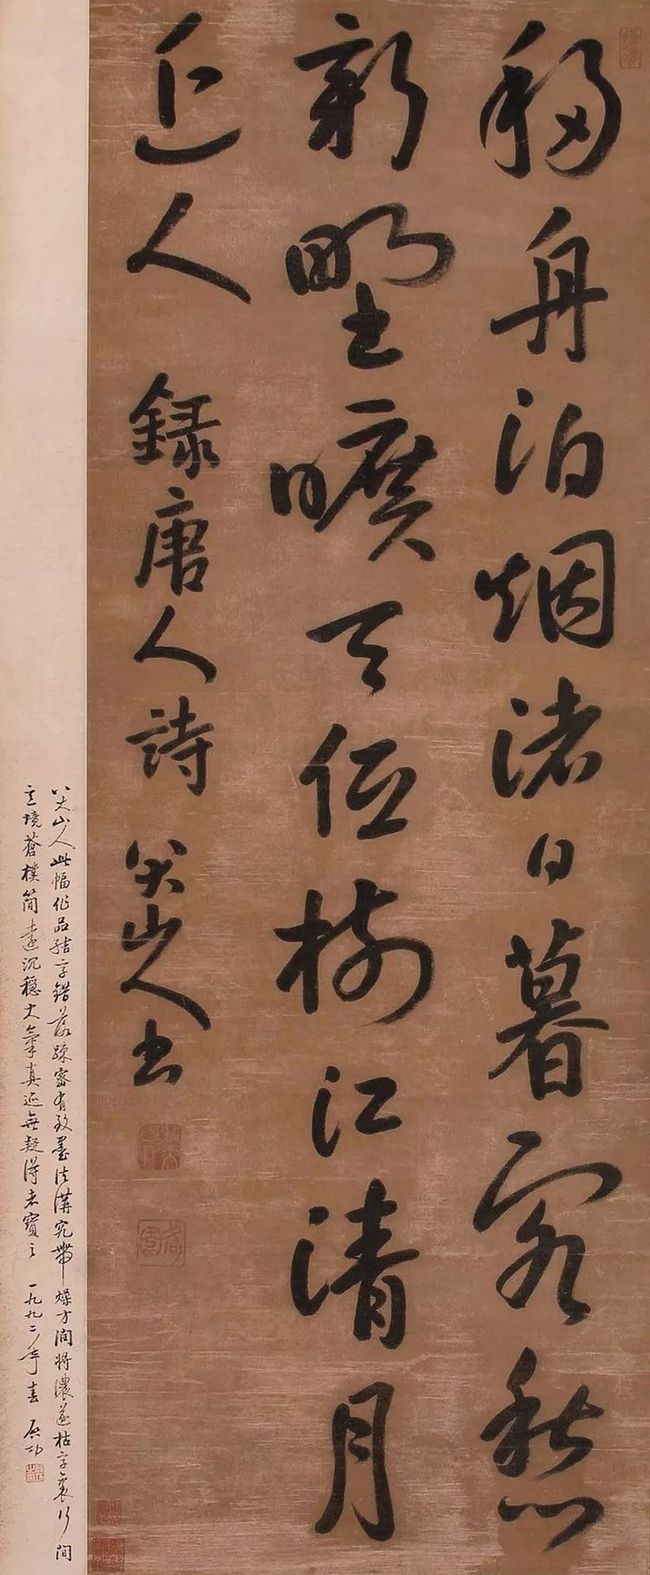 移舟泊烟渚日暮客愁
新野曠天低樹江清月
近人 錄唐人詩 八大山人書
八大山人此幅作品結字錯落疎密有致墨法講究帶燥方潤將濃遂枯字裏行間
意境蒼樸簡遠沉穩大氣真迹無疑得者寶之 一九九二年春 啟功